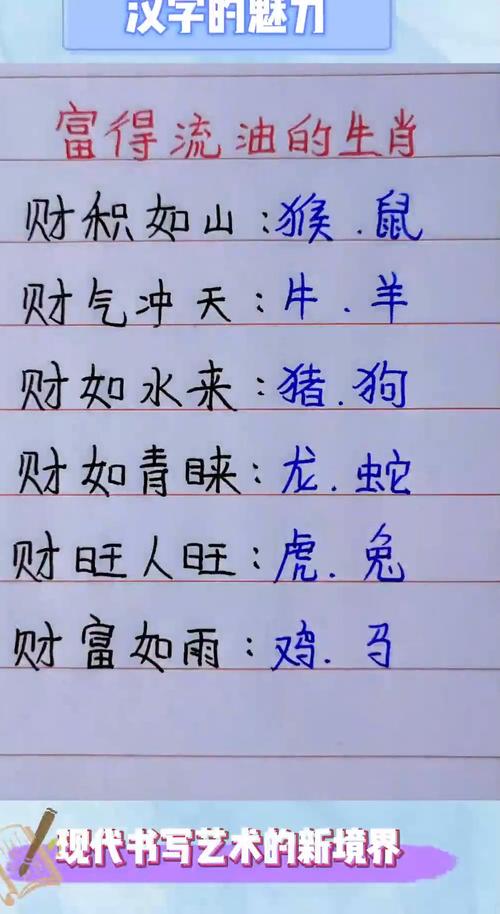 汉字的魅力
富得流油的生肖
财积如山:猴.鼠
财气冲天:牛.羊
财如水来:猪.狗
财如青睐:龙.蛇
财旺人旺:虎.兔
财富如雨:鸡.马
现代书写艺术的新境界